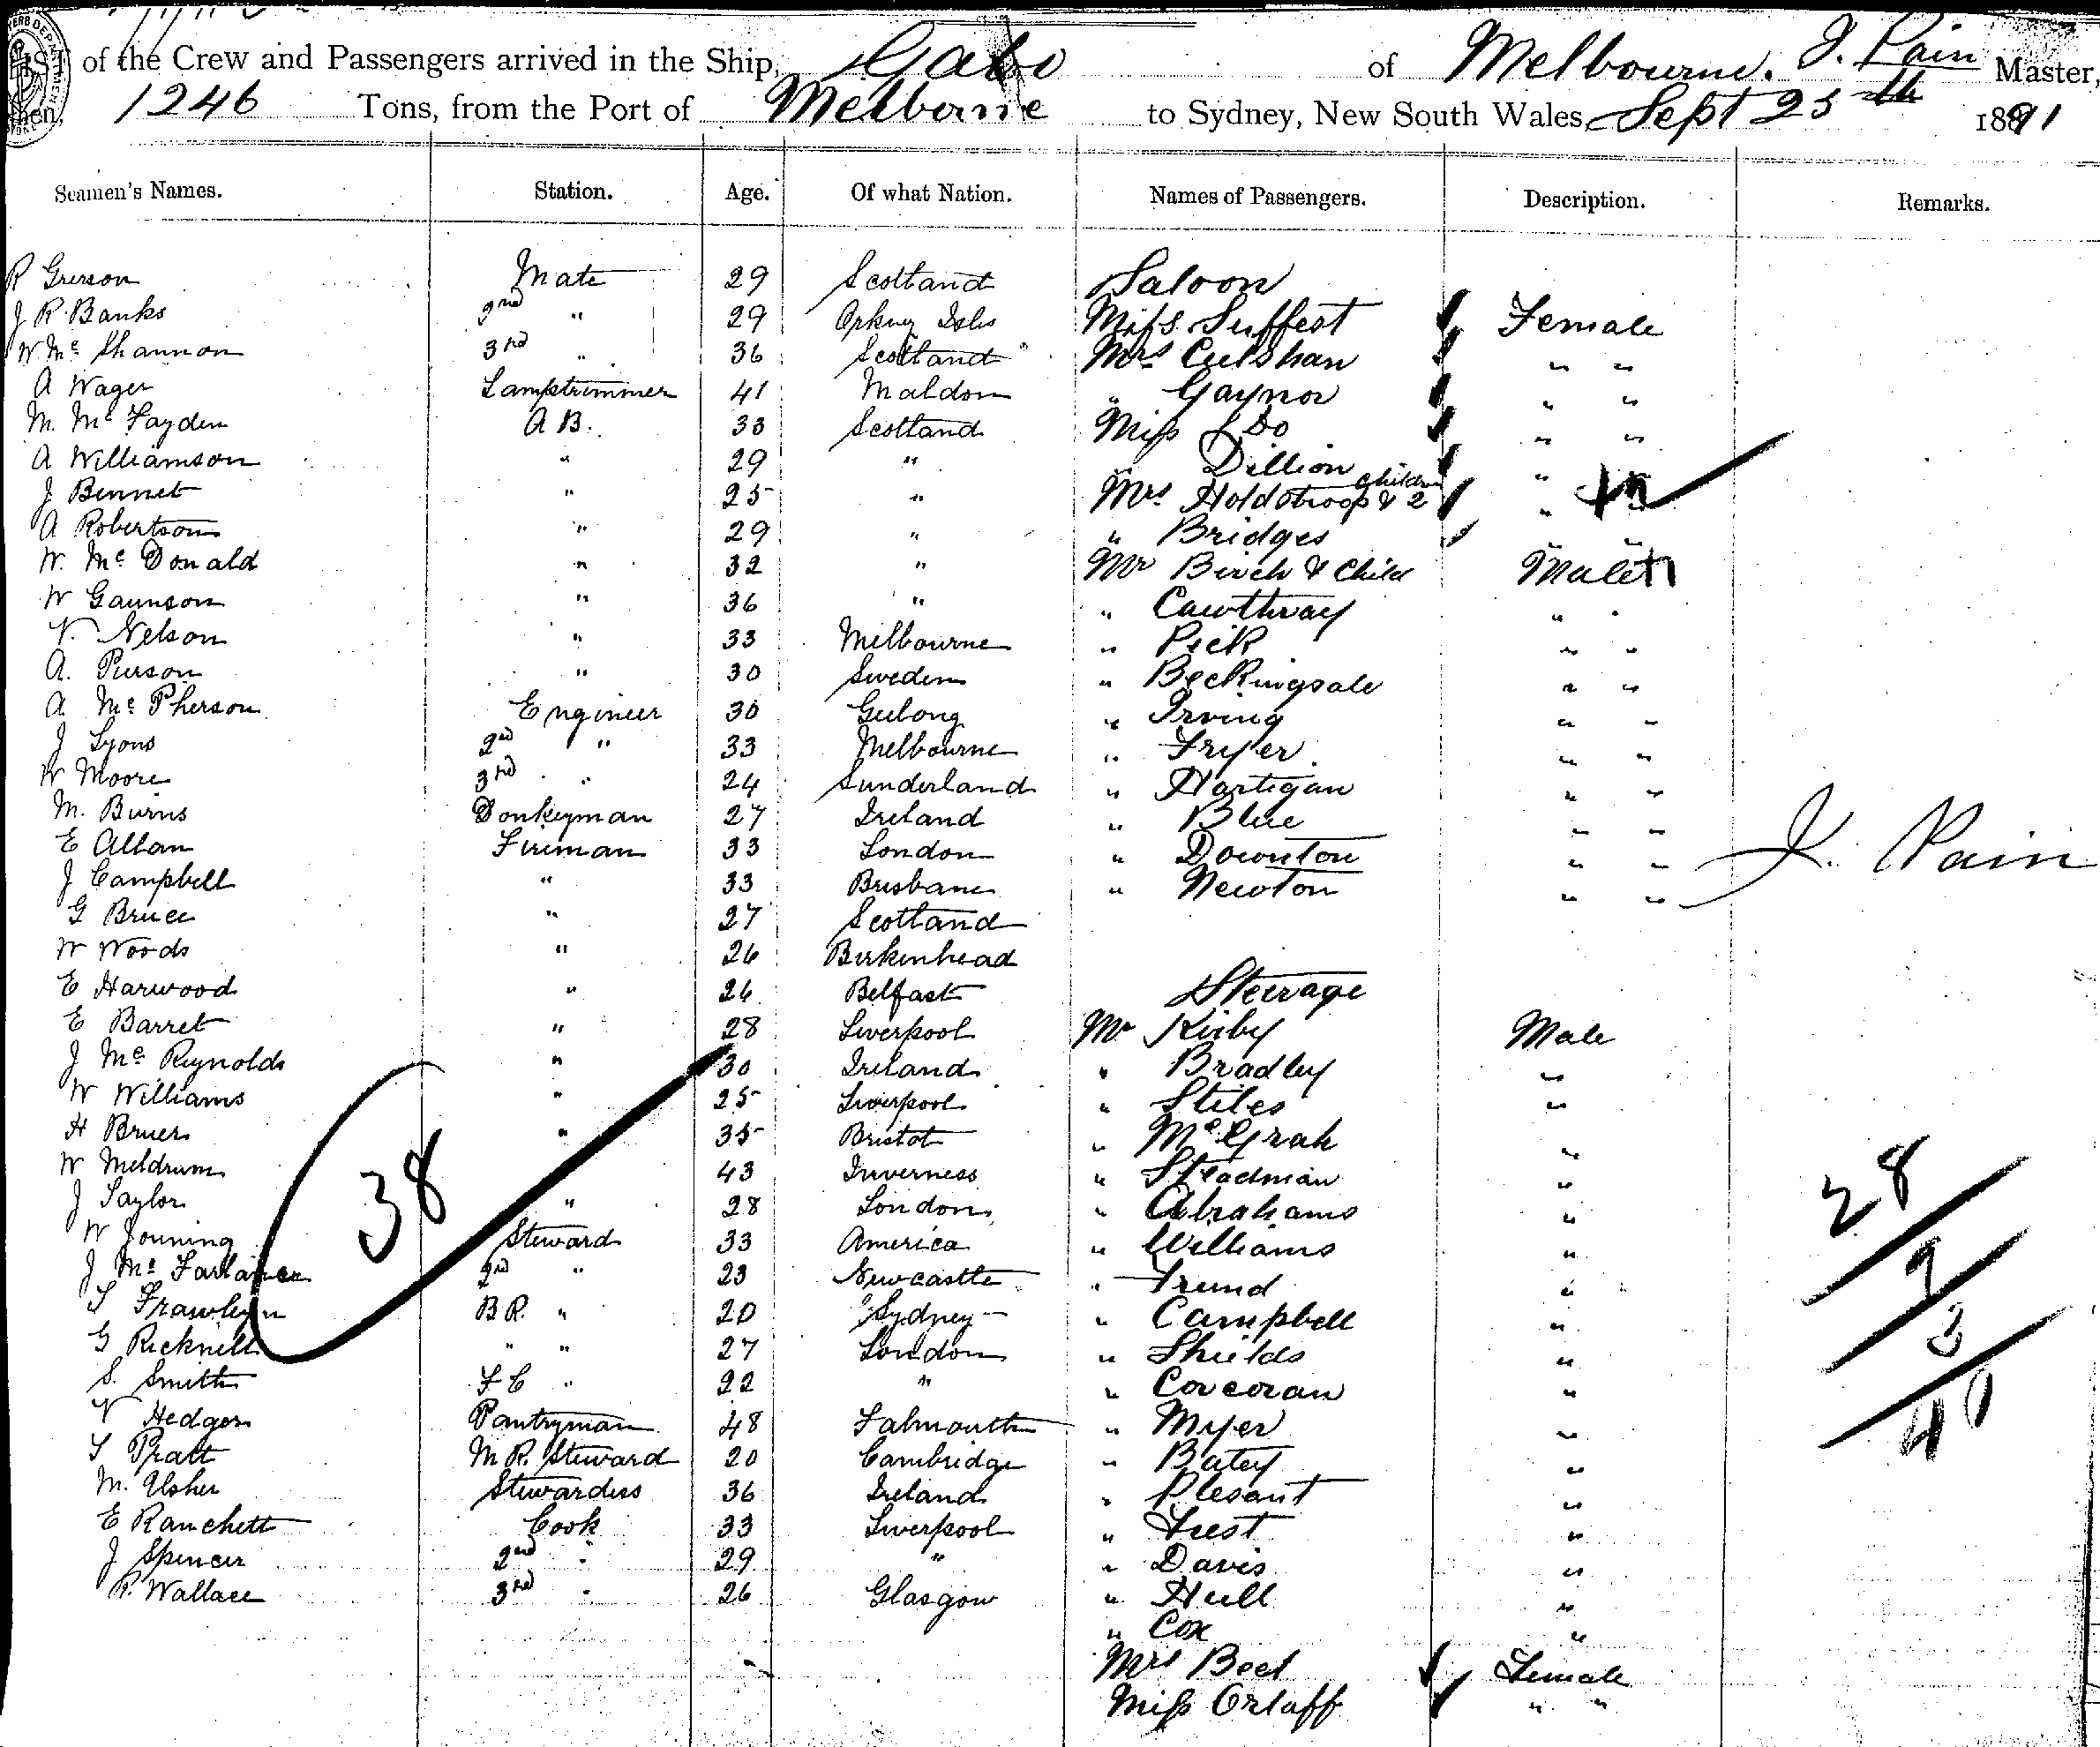 of the Crew and Passengers arrived in the Ship, Gabo of Melbourne. J. Pain Master,
1246 Tons, from the Port of Melborne to Sydney, New South Wales, Sept 25th 1891
Seamen's Names. Station. Age. Of what Nation. Names of Passengers. Description. Remarks.
R Grerson Mate 29 Scotland Saloon
J R. Banks 2nd " 29 Orkny Isls Miss Suffest Female
W. Mc Shannon 3rd " 36 Scotland Mrs Culshan " "
A Wager Lamptrimmer 41 Maldon " Gaynor " "
M. Mc Fayden A B. 33 Scotland Miss Do " "
A Williamson " 29 " Dillion "
J Bennet " 25 " Mrs Holdstroop & 2 children "
A Robertson " 29 " " Bridges " "
W. Mc Donald " 32 " Mr Birch & Child Male
W Gaunson " 36 " " Cawthray " "
N. Nelson " 33 Melbourne " Pick " "
A. Pierson " 30 Sweden " Beckingsale " "
A Mc Pherson Engineer 30 Geelong " Irving " "
J Lyons 2nd " 33 Melbourne " Fryer " "
W Moore 3rd " 24 Sunderland " Hartigan " "
M. Burns Donkeyman 27 Ireland " Blue " "
E Allan Fireman 33 London " Downton " " J. Pain
J Campbell " 33 Brisbane " Newton " "
G Bruce " 27 Scotland
W Woods " 26 Birkenhead
E Harwood " 26 Belfast Steerage
E Barret " 28 Liverpool Mr Kirby Male
J Mc Reynolds " 30 Ireland " Bradley "
W Williams " 25 Liverpool " Stiles "
H Bruer " 35 Bristol " Mc Grah "
W Meldrum 43 Inverness " Steadman "
J Taylor " 28 London " Abrahams "
38
28
W Jouning Steward 33 America " Williams "
J Mc Farlane 2nd " 23 Newcastle " Trund "
9
T Frawley B.R. " 20 Sydney " Campbell "
G Ricknell " " 27 London " Shields "
3
S. Smith F C " 22 " " Corcoran "
N Hedger Pantryman 48 Falmouth " Myer "
40
T Pratt M.R. Steward 20 Cambridge " Batey "
M. Usher Stewardess 36 Ireland " Plesant "
E Ranchett Cook 33 Liverpool " Frest "
J Spencer 2nd " 29 " " Davis "
R. Wallace 3rd " 26 Glasgow " Hull "
" Cox "
Mrs Beel Female
Miss Orlaff " "